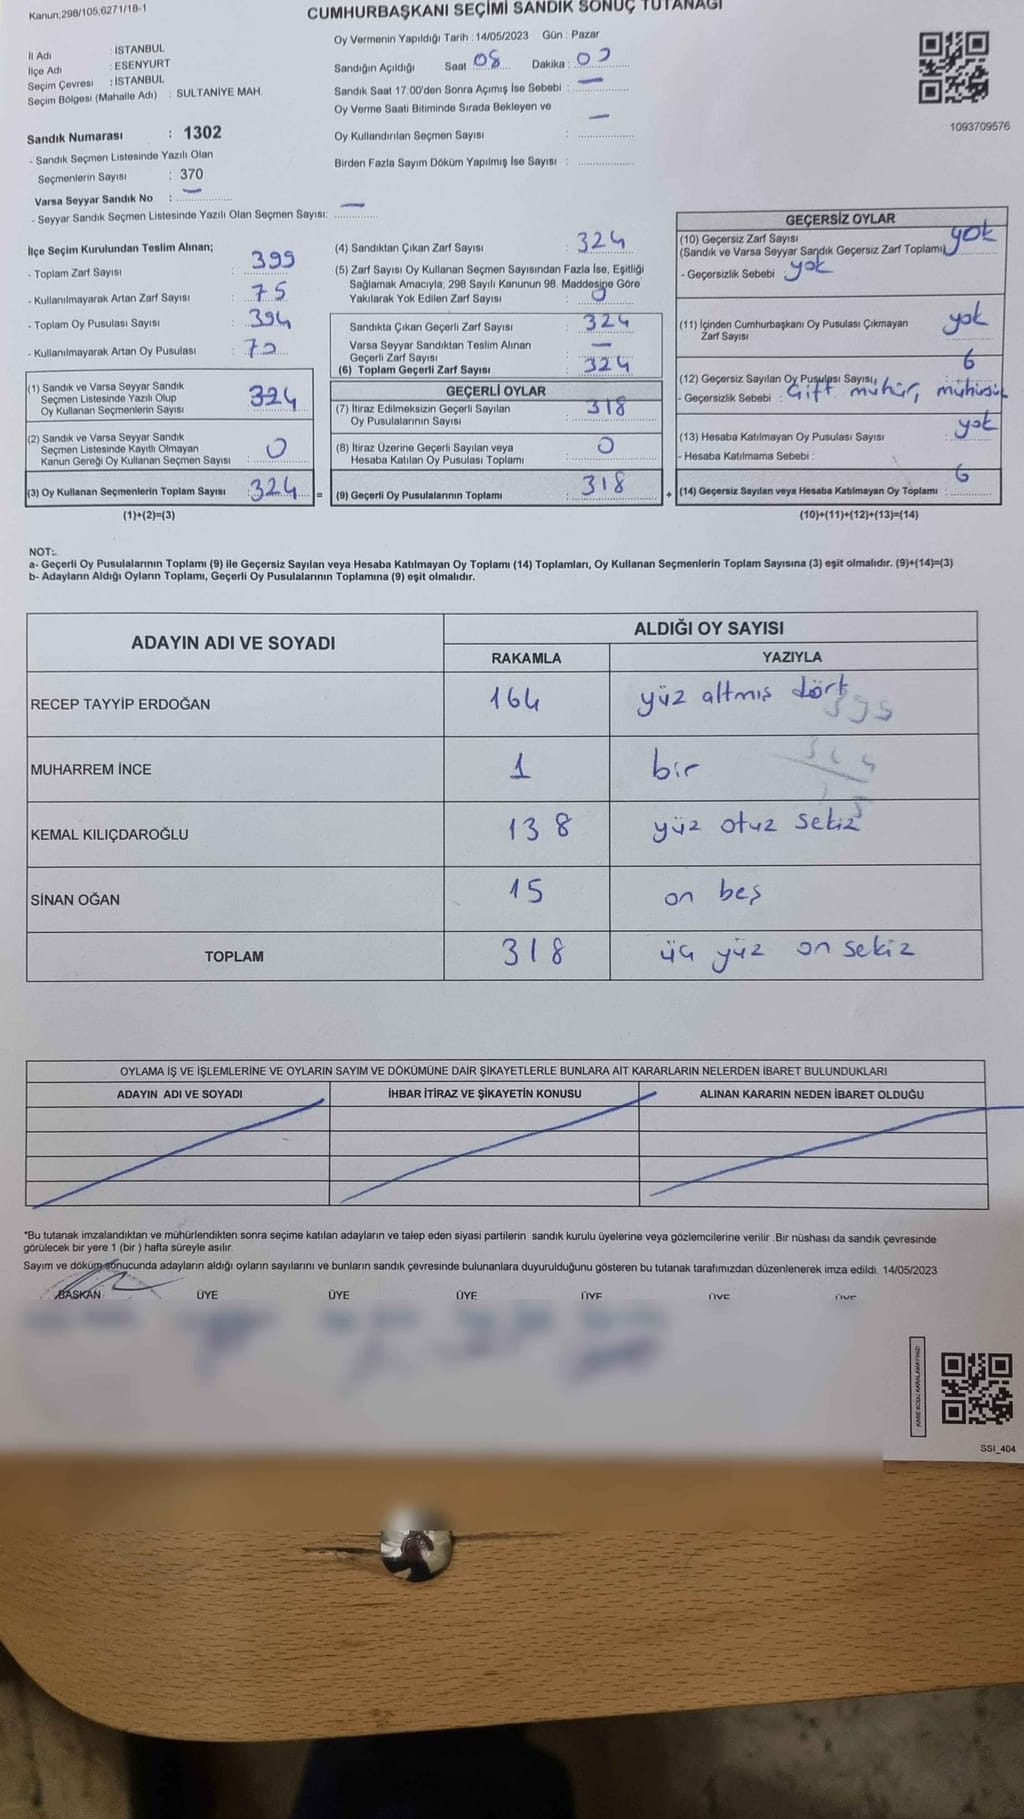 Kanun;298/105,6271/18-1
CUMHURBAŞKANI SEÇİMİ SANDIK SONUÇ TUTANAĞI
Oy Vermenin Yapıldığı Tarih : 14/05/2023 Gün : Pazar
İl Adı : İSTANBUL
İlçe Adı : ESENYURT
Seçim Çevresi : İSTANBUL
Seçim Bölgesi (Mahalle Adı) : SULTANİYE MAH.
Sandığın Açıldığı Saat 08 Dakika :
Sandık Saat 17.00'den Sonra Açımış İse Sebebi : —
Oy Verme Saati Bitiminde Sırada Bekleyen ve
Oy Kullandırılan Seçmen Sayısı : —
Birden Fazla Sayım Döküm Yapılmış İse Sayısı :
1093709576
Sandık Numarası : 1302
- Sandık Seçmen Listesinde Yazılı Olan
Seçmenlerin Sayısı : 370
Varsa Seyyar Sandık No : —
- Seyyar Sandık Seçmen Listesinde Yazılı Olan Seçmen Sayısı: —
İlçe Seçim Kurulundan Teslim Alınan;
- Toplam Zarf Sayısı : 399
- Kullanılmayarak Artan Zarf Sayısı : 75
- Toplam Oy Pusulası Sayısı : 394
- Kullanılmayarak Artan Oy Pusulası : 70
(1) Sandık ve Varsa Seyyar Sandık
Seçmen Listesinde Yazılı Olup
Oy Kullanan Seçmenlerin Sayısı 324
(2) Sandık ve Varsa Seyyar Sandık
Seçmen Listesinde Kayıtlı Olmayan
Kanun Gereği Oy Kullanan Seçmen Sayısı : 0
(3) Oy Kullanan Seçmenlerin Toplam Sayısı : 324 =
(1)+(2)=(3)
(4) Sandıktan Çıkan Zarf Sayısı : 324
(5) Zarf Sayısı Oy Kullanan Seçmen Sayısından Fazla İse, Eşitliği
Sağlamak Amacıyla; 298 Sayılı Kanunun 98. Maddesine Göre
Yakılarak Yok Edilen Zarf Sayısı : 0
Sandıkta Çıkan Geçerli Zarf Sayısı : 324
Varsa Seyyar Sandıktan Teslim Alınan
Geçerli Zarf Sayısı : —
(6) Toplam Geçerli Zarf Sayısı : 324
GEÇERLİ OYLAR
(7) İtiraz Edilmeksizin Geçerli Sayılan
Oy Pusulalarının Sayısı : 318
(8) İtiraz Üzerine Geçerli Sayılan veya
Hesaba Katılan Oy Pusulası Toplamı : 0
(9) Geçerli Oy Pusulalarının Toplamı : 318 +
GEÇERSİZ OYLAR
(10) Geçersiz Zarf Sayısı
(Sandık ve Varsa Seyyar Sandık Geçersiz Zarf Toplamı) yok
- Geçersizlik Sebebi : yok
(11) İçinden Cumhurbaşkanı Oy Pusulası Çıkmayan
Zarf Sayısı yok
(12) Geçersiz Sayılan Oy Pusulası Sayısı, 6
- Geçersizlik Sebebi : Çift mühür, mühürsüz
(13) Hesaba Katılmayan Oy Pusulası Sayısı : yok
- Hesaba Katılmama Sebebi :
(14) Geçersiz Sayılan veya Hesaba Katılmayan Oy Toplamı : 6
(10)+(11)+(12)+(13)=(14)
NOT:
a- Geçerli Oy Pusulalarının Toplamı (9) ile Geçersiz Sayılan veya Hesaba Katılmayan Oy Toplamı (14) Toplamları, Oy Kullanan Seçmenlerin Toplam Sayısına (3) eşit olmalıdır. (9)+(14)=(3)
b- Adayların Aldığı Oyların Toplamı, Geçerli Oy Pusulalarının Toplamına (9) eşit olmalıdır.
ADAYIN ADI VE SOYADI
ALDIĞI OY SAYISI
RAKAMLA YAZIYLA
RECEP TAYYİP ERDOĞAN 164 yüz altmış dört
MUHARREM İNCE 1 bir
KEMAL KILIÇDAROĞLU 138 yüz otuz sekiz
SİNAN OĞAN 15 on beş
TOPLAM 318 üç yüz on sekiz
OYLAMA İŞ VE İŞLEMLERİNE VE OYLARIN SAYIM VE DÖKÜMÜNE DAİR ŞİKAYETLERLE BUNLARA AİT KARARLARIN NELERDEN İBARET BULUNDUKLARI
ADAYIN ADI VE SOYADI İHBAR İTİRAZ VE ŞİKAYETİN KONUSU ALINAN KARARIN NEDEN İBARET OLDUĞU
*Bu tutanak imzalandıktan ve mühürlendikten sonra seçime katılan adayların ve talep eden siyasi partilerin sandık kurulu üyelerine veya gözlemcilerine verilir .Bir nüshası da sandık çevresinde
görülecek bir yere 1 (bir ) hafta süreyle asılır.
Sayım ve döküm sonucunda adayların aldığı oyların sayılarını ve bunların sandık çevresinde bulunanlara duyurulduğunu gösteren bu tutanak tarafımızdan düzenlenerek imza edildi. 14/05/2023
BAŞKAN ÜYE ÜYE ÜYE ÜYE ÜYE ÜYE
KARE KODU KARALAMAYINIZ!
SSI_404